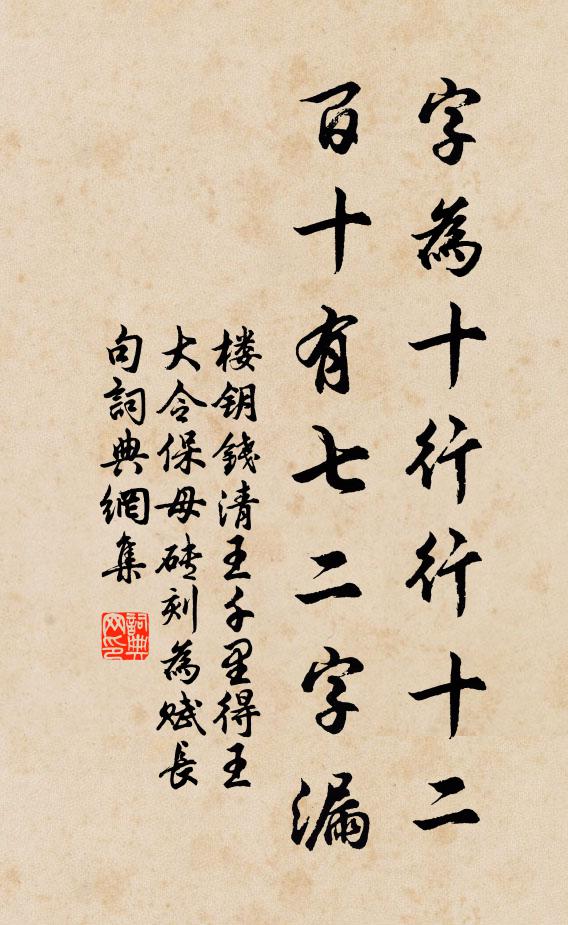 字為十行行十二
百十有七二字漏
楼钥錢清王千里得王
大令保母磚刻為赋長
句詞典網集
詞典网印